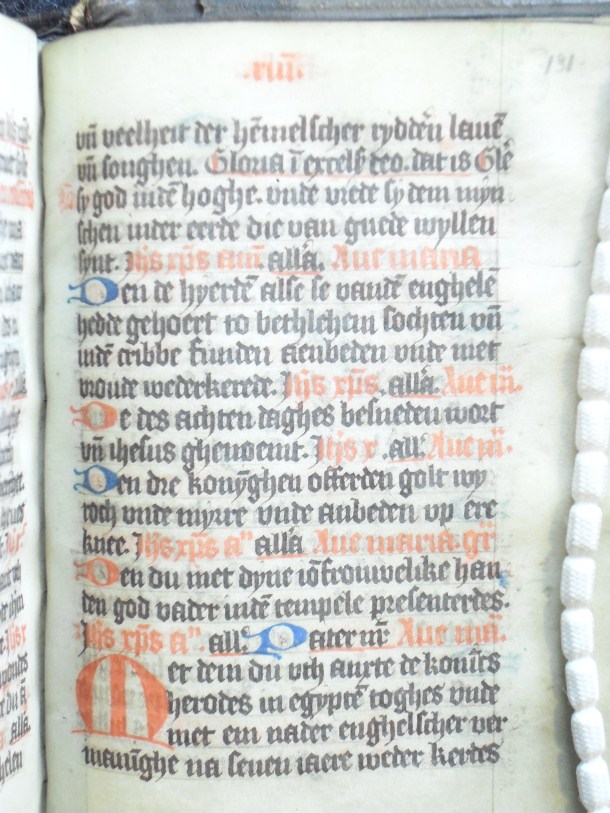 .xiii.
131
vñ veelheit der hēmelscher rydderē lauē
vñ songhen. Gloria ī excelsꝰ deo. dat is Glē
sy god indē hoghe. vnde vrede sy dem myn
schen inder eerde die van guede wyllen
synt. Ihs xp̄s am̄ allā. Aue maria
Den de hyerdē alse se vandē enghelē
hedde gehoert to bethlehem sochten vñ
indē cribbe funden aenbeden vnde met
vroude wederkerede. Ihs xp̄s. allā. Aue m̄.
De des achten daghes besneden wort
vñ ihesus ghenoemt. Ihs x. all. Aue m̄.
Den dre konyghen offerden golt wy
roch vnde myrre vnde anbeden vp ere
knee. Ihs xp̄s a" allā Aue maria. gr̄
Den du met dyne iōfrouwelike han
den god vader indē tempele presenterdes.
Ihs xp̄s a". all. Pater nr̄ Aue ma.
Met dem du vth anxte de konīcs
herodes in egyptē toghes vnde
met en nader enghelscher ver
manīghe na seuen iaere weder kerdes